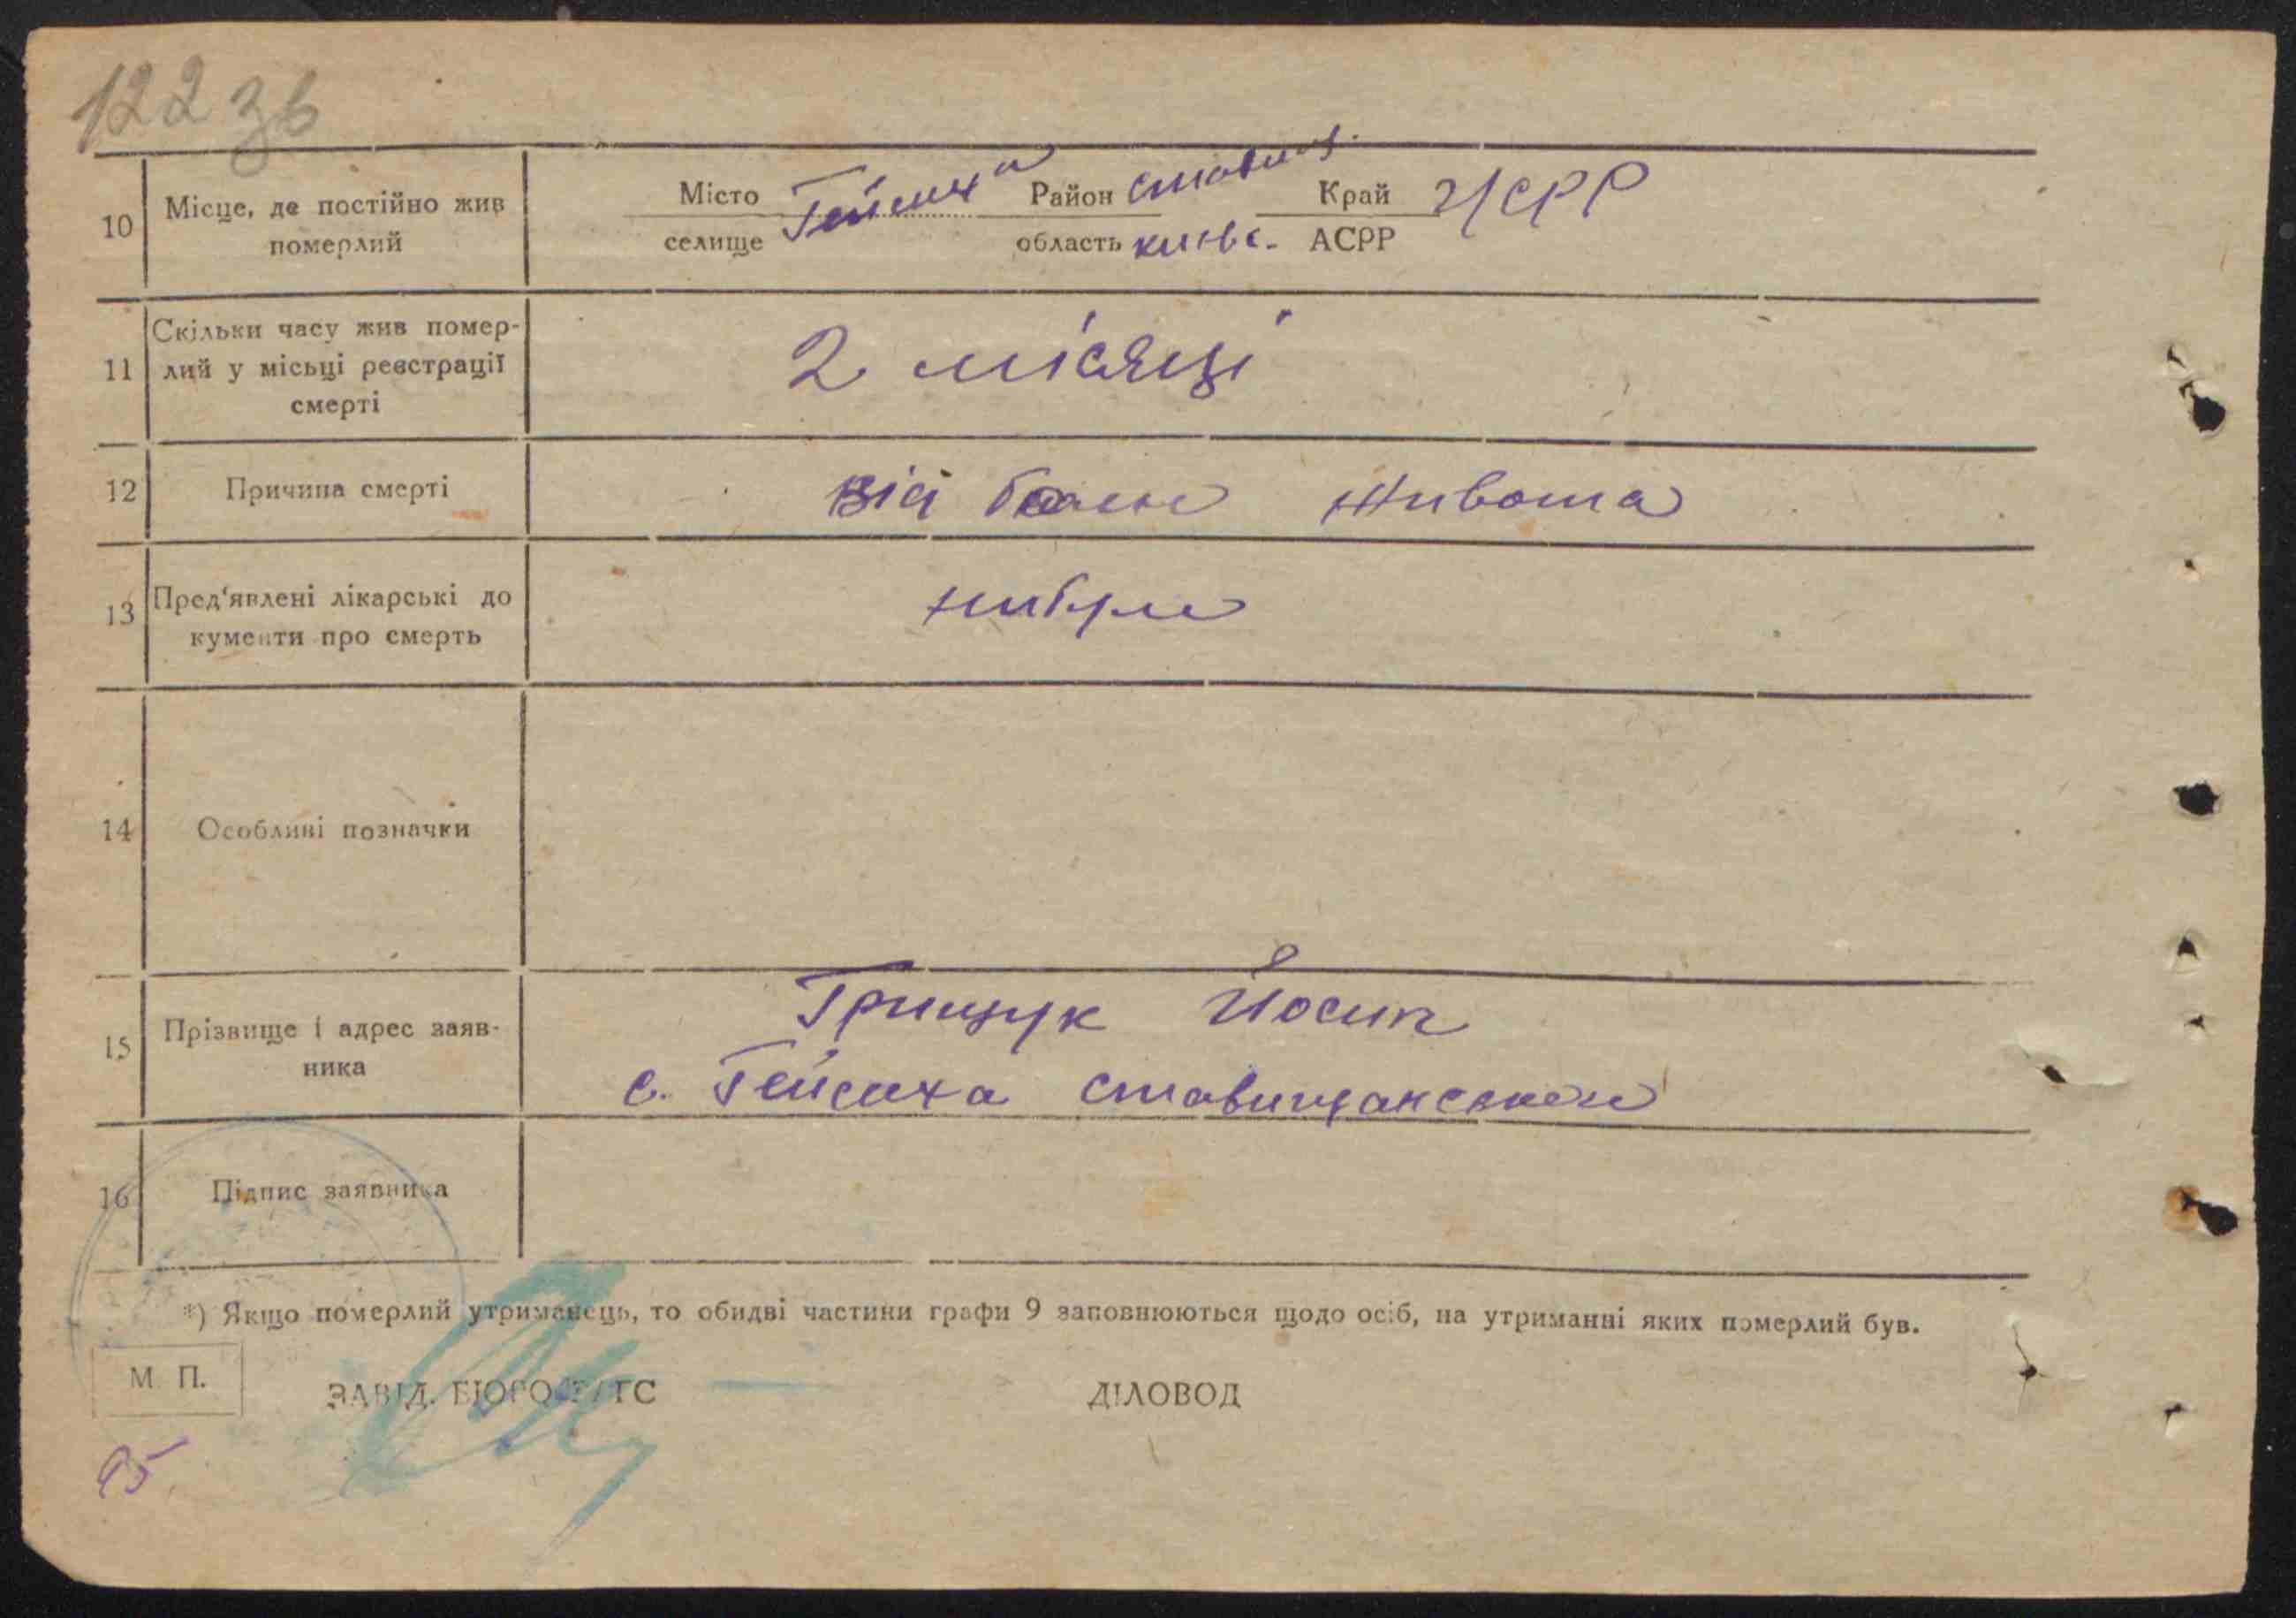 122 зв
10 Місце, де постійно жив померлий
Місто селище Гейсиха Район Ставищ. область київс. Край АСРР УСРР
11 Скільки часу жив помер-
лий у місьці реєстрації
смерті
2 місяці
12 Причина смерті
від живота
13 Пред'явлені лікарські до
кументи про смерть
14 Особливі позначки
15 Прізвище і адрес заяв-
ника
Грищук Йосип
с. Гейсиха Ставищанського
16 Підпис заявника
*) Якщо померлий утриманець, то обидві частини графи 9 заповнюються щодо осіб, на утриманні яких померлий був.
М. П.
ЗАВІД. БЮРО ЗАГС
ДІЛОВОД
95